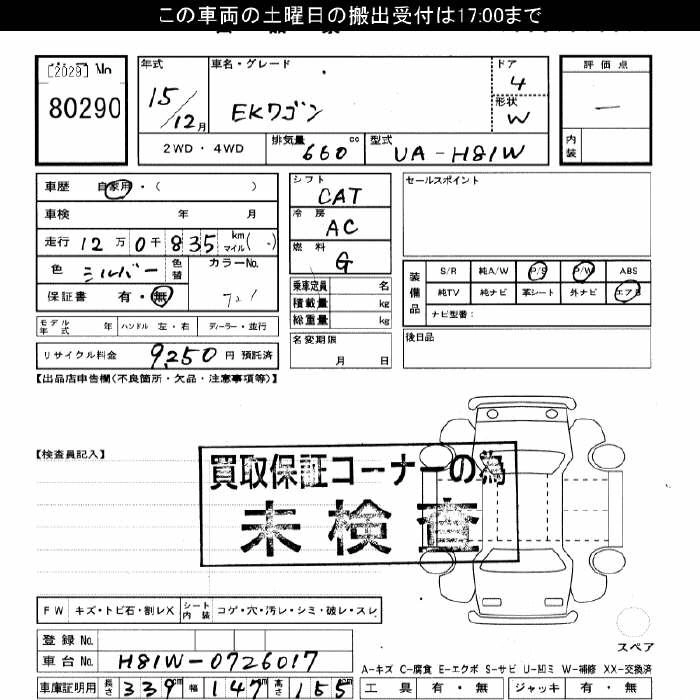 この車両の土曜日の搬出受付は17:00まで
[2029] No
80290
年式
15/12月
車名・グレード
EKワゴン
ドア
4
形状
W
評価点
—
内装
2WD・4WD
排気量 660 cc
型式 UA-H81W
車歴 自家用・( )
車検 年 月
走行 12万0千835 km マイル( )
色 シルバー 色替
カラーNo.
保証書 有・無
シフト CAT
冷房 AC
燃料 G
乗車定員 名
積載量 kg
総重量 kg
セールスポイント
装備品
S/R 純A/W P/S P/W ABS
純TV 純ナビ 革シート 外ナビ エアB
ナビ型番:
モデル年式 年 ハンドル 左・右 ディーラー・並行
名変期限
月 日
後日品
リサイクル料金 9,250 円 預託済
【出品店申告欄(不良箇所・欠品・注意事項等)】
【検査員記入】
買取保証コーナーの為
未検査
FW キズ・トビ石・割レX シート内装 コゲ・穴・汚レ・シミ・破レ・スレ
スペア
登録No.
車台No. H81W-0726017
A-キズ C-腐食 E-エクボ S-サビ U-凹ミ W-補修 XX-交換済
車庫証明用 長さ 339cm 幅 147cm 高さ 155cm
工具 有・無 ジャッキ 有・無